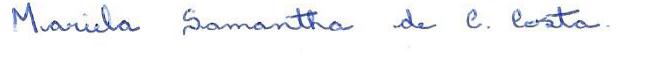 Mariela Samantha de C. Costa.